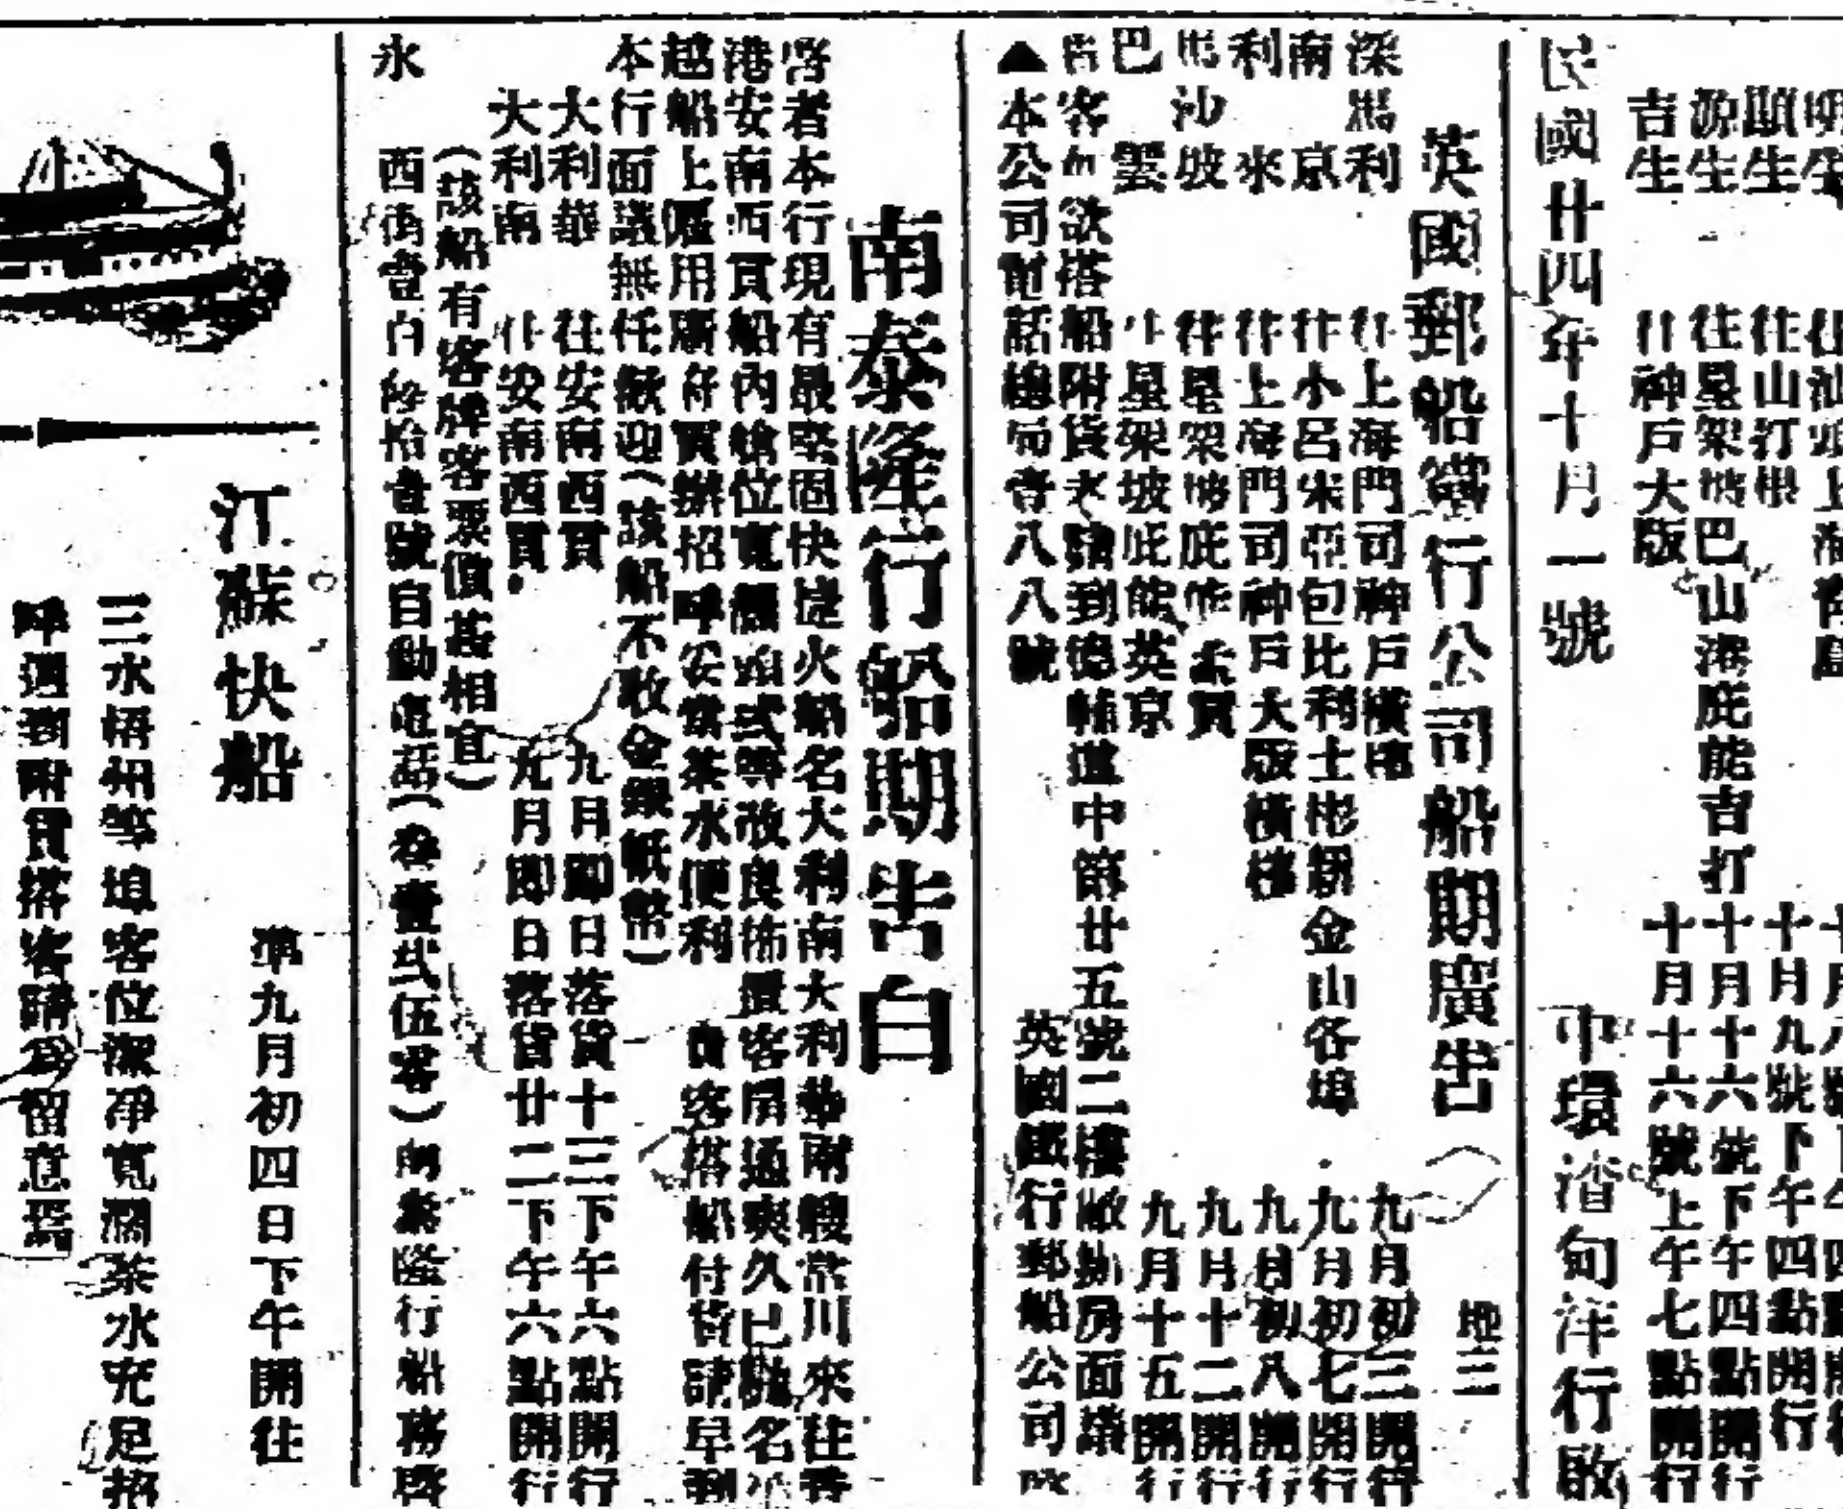 明生 往汕頭上海青島
顯生 往山打根 十月九號下午四點開行
源生 往星架坡巴山港庇能吉打 十月十六號下午四點開行
吉生 往神戶大版 十月十六號上午七點開行
民國廿四年十月一號 中環渣甸洋行啟
英國郵船鐵行公司船期廣告 地三
深馬利 往上海門司神戶橫檳 九月初三開行
南京 往小呂宋亞包比利士彬銀金山各埠 九月初七開行
利來 往上海門司神戶大版橫檳 九月初八開行
馬沙坡 往星架坡庇能孟買 九月十二開行
巴雲 往星架坡庇能英京 九月十五開行
貴客如欲搭船附貨者請到德輔道中第廿五號二樓敝寫房面議
▲本公司電話總局壹八八號 英國鐵行郵船公司啟
南泰隆行船期告白
啓者本行現有最堅固快捷火船名大利南大利華兩艘常川來往香
港安南西貢船內艙位寬 改良佈置客房通爽久已馳名
越船上僱用廣府買辦招呼安當茶水便利 貴客搭船付貨請早到
本行面議無任歡迎(該船不收金銀紙幣)
大利華 往安南西貢 九月卽日落貨十三下午六點開行
大利南 往安南西貢 九月卽日落貨廿二下午六點開行
(該船有客牌客票價甚相宜)
永 西街壹百 拾壹號自動電話(叁壹弍伍零)南泰隆行船務啓
江蘇快船 準九月初四日下午開往
三水梧州等埠客位潔淨寬濶茶水充足招
呼週到附貨搭客請為留意焉